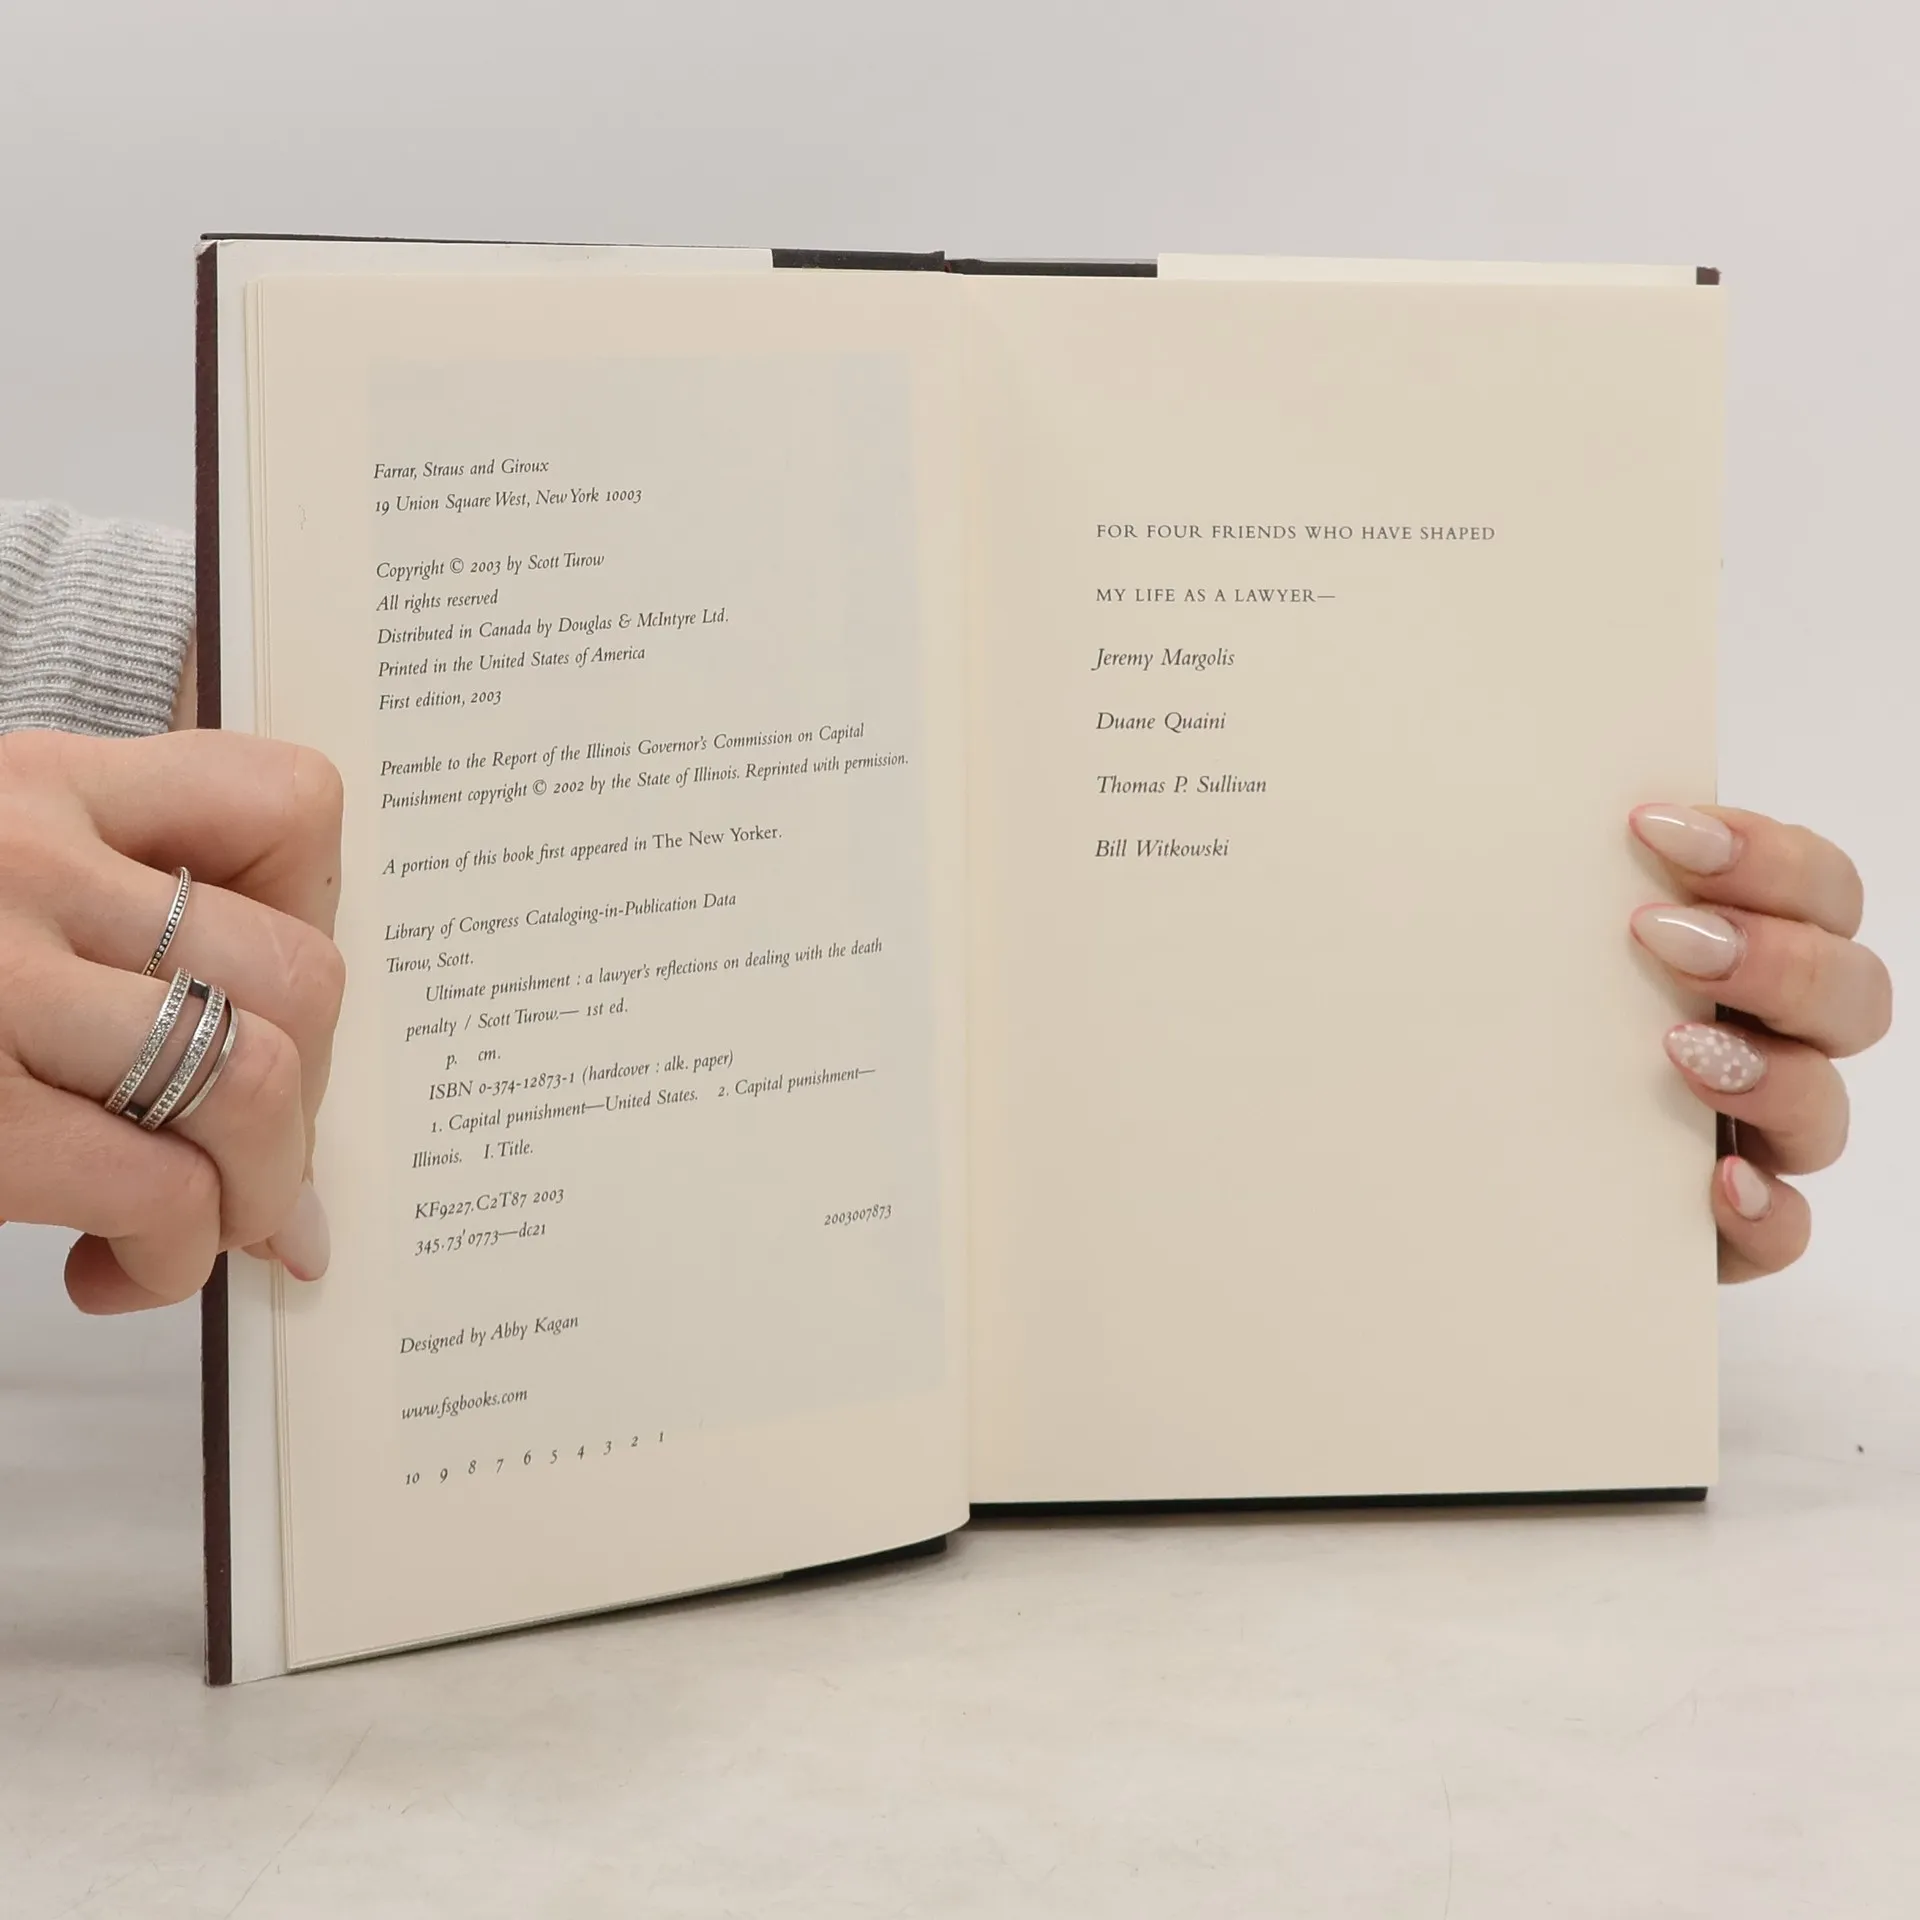 Farrar, Straus and Giroux
19 Union Square West, New York 10003
Copyright © 2003 by Scott Turow
All rights reserved
Distributed in Canada by Douglas & McIntyre Ltd.
Printed in the United States of America
First edition, 2003
Preamble to the Report of the Illinois Governor's Commission on Capital
Punishment copyright © 2002 by the State of Illinois. Reprinted with permission.
A portion of this book first appeared in The New Yorker.
Library of Congress Cataloging-in-Publication Data
Turow, Scott.
Ultimate punishment : a lawyer's reflections on dealing with the death
penalty / Scott Turow.— 1st ed.
p. cm.
ISBN 0-374-12873-1 (hardcover : alk. paper)
1. Capital punishment—United States. 2. Capital punishment—
Illinois. I. Title.
KF9227.C2T87 2003
345.73'0773—dc21
2003007873
Designed by Abby Kagan
www.fsgbooks.com
10 9 8 7 6 5 4 3 2 1
FOR FOUR FRIENDS WHO HAVE SHAPED
MY LIFE AS A LAWYER—
Jeremy Margolis
Duane Quaini
Thomas P. Sullivan
Bill Witkowski